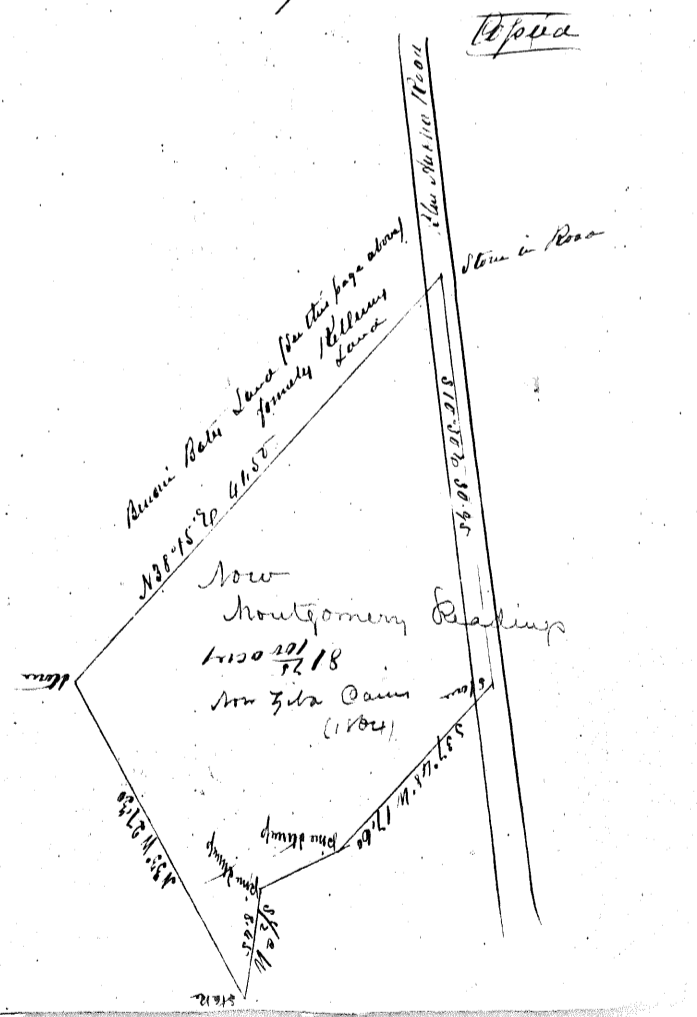 Copied
Stone in Road
Benoni Bates Land (See this page above)
formerly Kelleums
Land
N 38° 15' E 41.50
S 10° 30' E 30.95
Now
Montgomery Readings
81 75/100 acres
Now Ziba Cains
(1864)
Stone
Stone
S 37° 45' W 17.60
pine stump
pine stump
N 35° W 27.30
S 12° W
8.45
Stake